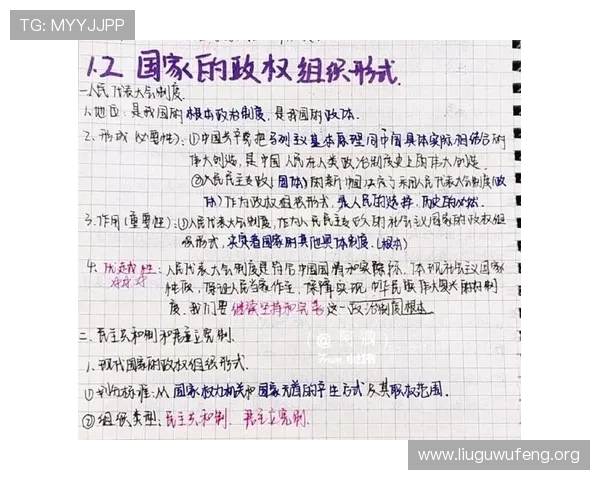 TG: MYYJJPP
1.2 国家的政权组织形式.
一人民代表大会制度.
1.地位:是我国的根本政治制度,是我国的政体.
2.形成(必要性):①中国共产党把马列主义基本原理同中国具体实际相结合的
伟大创造,是中国人民在人类政治制度史上的伟大创造.
②人民民主专政(国体)的新中国决定了采用人民代表大会制度(政
体)作为政权组织形式,是人民的选择,历史的必然.
3.作用(重要性):①人民代表大会制度,作为人民民主专政的社会主义国家的政权组
织形式,决定着国家的其他具体制度.(根本)
4.优越性:人民代表大会制度是符合中国国情和实际,体现社会主义国家
性质,保证人民当家作主,保障实现中华民族伟大复兴的好制
度,我们要继续坚持和完善这一政治制度
二.民主共和制和君主立宪制.
1.现代国家的政权组织形式.
①划分标准:从国家权力机关和国家元首的产生方式及其职权范围.
②组织类型:民主共和制.君主立宪制.
https://www.liuguwufeng.org